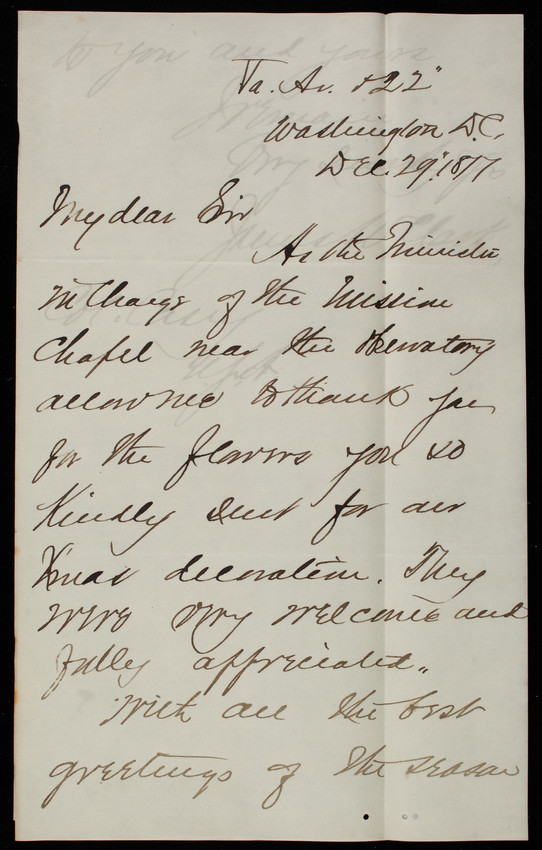 Va. Av. & 22"
Washington D.C.
Dec. 29", 1877
My dear Sir
As the Minister
in Charge of the Mission
Chapel near the Observatory
allow me to thank you
for the flowers you so
Kindly sent for our
Xmas decoration. They
were very welcome and
fully appreciated.
With all the best
greetings of the season
to you and yours